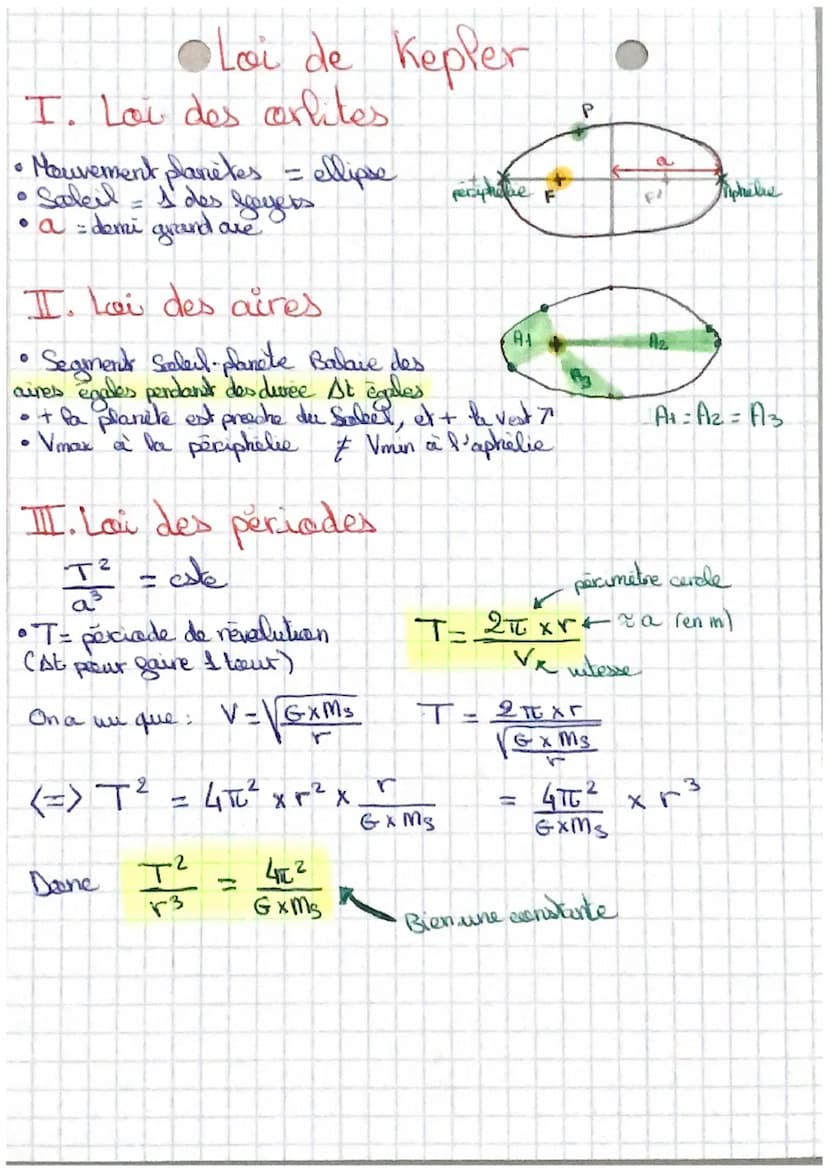 Loi de Kepler
I. Loi des orbites
P
• Mouvement planètes = ellipse
• Soleil = 1 des foyers
• a = demi grand axe
a
périphélie
F
F'
Aphélie
II. Loi des aires
• Segment Soleil-planète Balaie des
aires égales pendant des durée Δt égales
• + la planète est proche du Soleil, et + la vest ↗
• Vmax à la périphélie ≠ Vmin à l'aphélie
A1
A2
A3
A1 = A2 = A3
III. Loi des périodes
T²/a³ = cste
• T = période de révolution
(Δt pour faire 1 tour)
périmètre cercle
T = 2π × r / V
← ≈ a (en m)
vitesse
On a vu que : V = √(G×Ms/r) T = 2π×r / √(G×Ms/r)
<=> T² = 4π² × r² × r/(G×Ms) = 4π²/(G×Ms) × r³
Donc T²/r³ = 4π²/(G×Ms)
Bien une constante